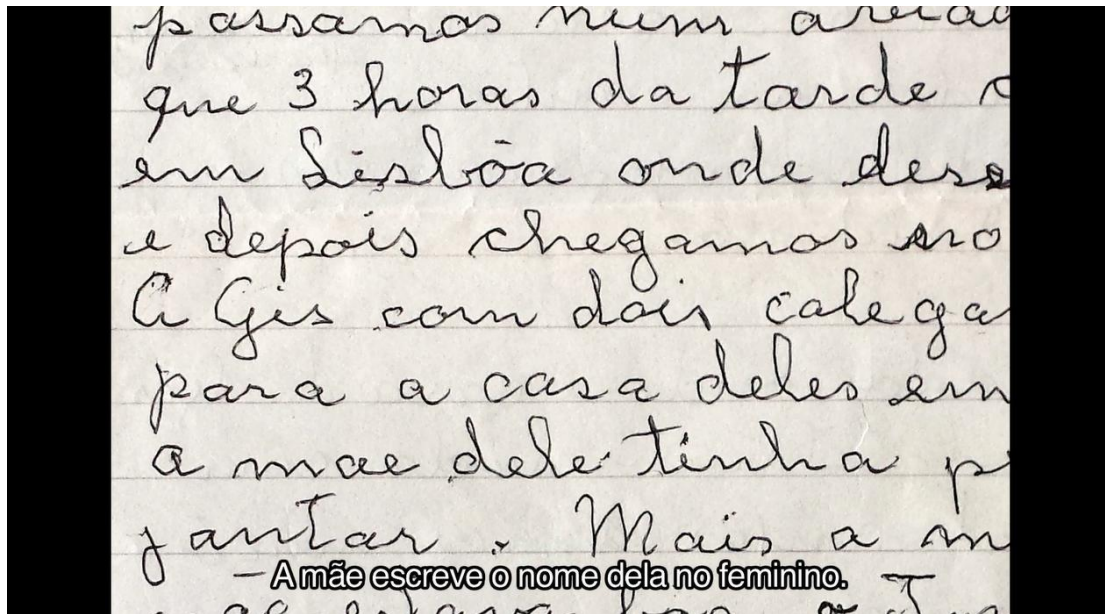 passamos num
que 3 horas da tarde
em Lisbôa onde
e depois chegamos no
A Gis com dois calega
para a casa deles em
a mae dele tinha p
jantar. Mais a m
– A mãe escreve o nome dela no feminino.